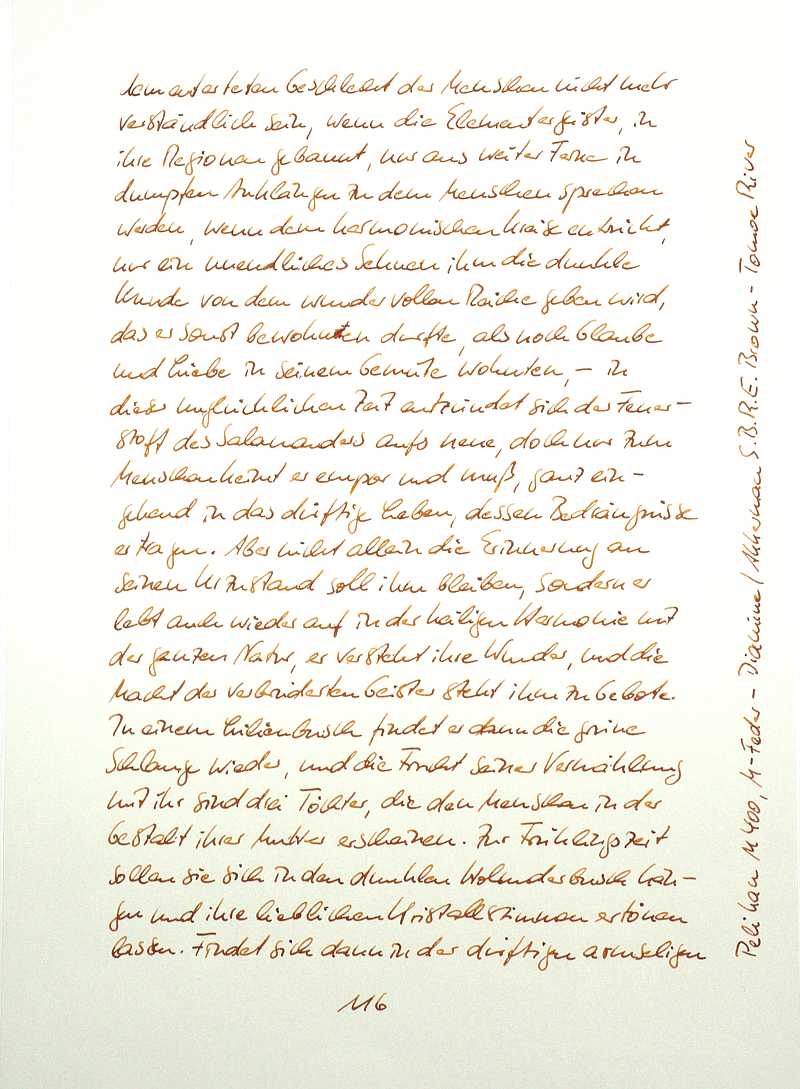 dem entarteten Geschlecht der Menschen nicht mehr
verständlich sein, wenn die Elementargeister, in
ihre Regionen gebannt, nur aus weiter Ferne in
dumpfen Anklängen zu dem Menschen sprechen
werden, wenn dem harmonischen Kreise entrückt,
nur ein unendliches Sehnen ihm die dunkle
Kunde von dem wundervollen Reiche geben wird,
das er sonst bewohnten durfte, als noch Glaube
und Liebe in seinem Gemüte wohnten, – in
dieser unglücklichen Zeit entzündet sich der Feuer-
stoff des Salamanders aufs neue, doch nur zum
Menschen keimt er empor und muß, ganz ein-
gehend in das dürftige Leben, dessen Bedrängnisse
ertragen. Aber nicht allein die Erinnerung an
seinen Urzustand soll ihm bleiben, sondern er
lebt auch wieder auf in der heiligen Harmonie mit
der ganzen Natur, er versteht ihre Wunder, und die
Macht der verbrüderten Geister steht ihm zu Gebote.
In einem Lilienbusch findet er dann die grüne
Schlange wieder, und die Frucht seiner Vermählung
mit ihr sind drei Töchter, die den Menschen in der
Gestalt ihrer Mutter erscheinen. Zur Frühlingszeit
sollen sie sich in den dunklen Holunderbusch hän-
gen und ihre lieblichen Kristallstimmen ertönen
lassen. Findet sich dann in der dürftigen armseligen
116
Pelikan M400, M-Feder – Diamine / Akkerman S.B.R.E. Brown – Tomoe River